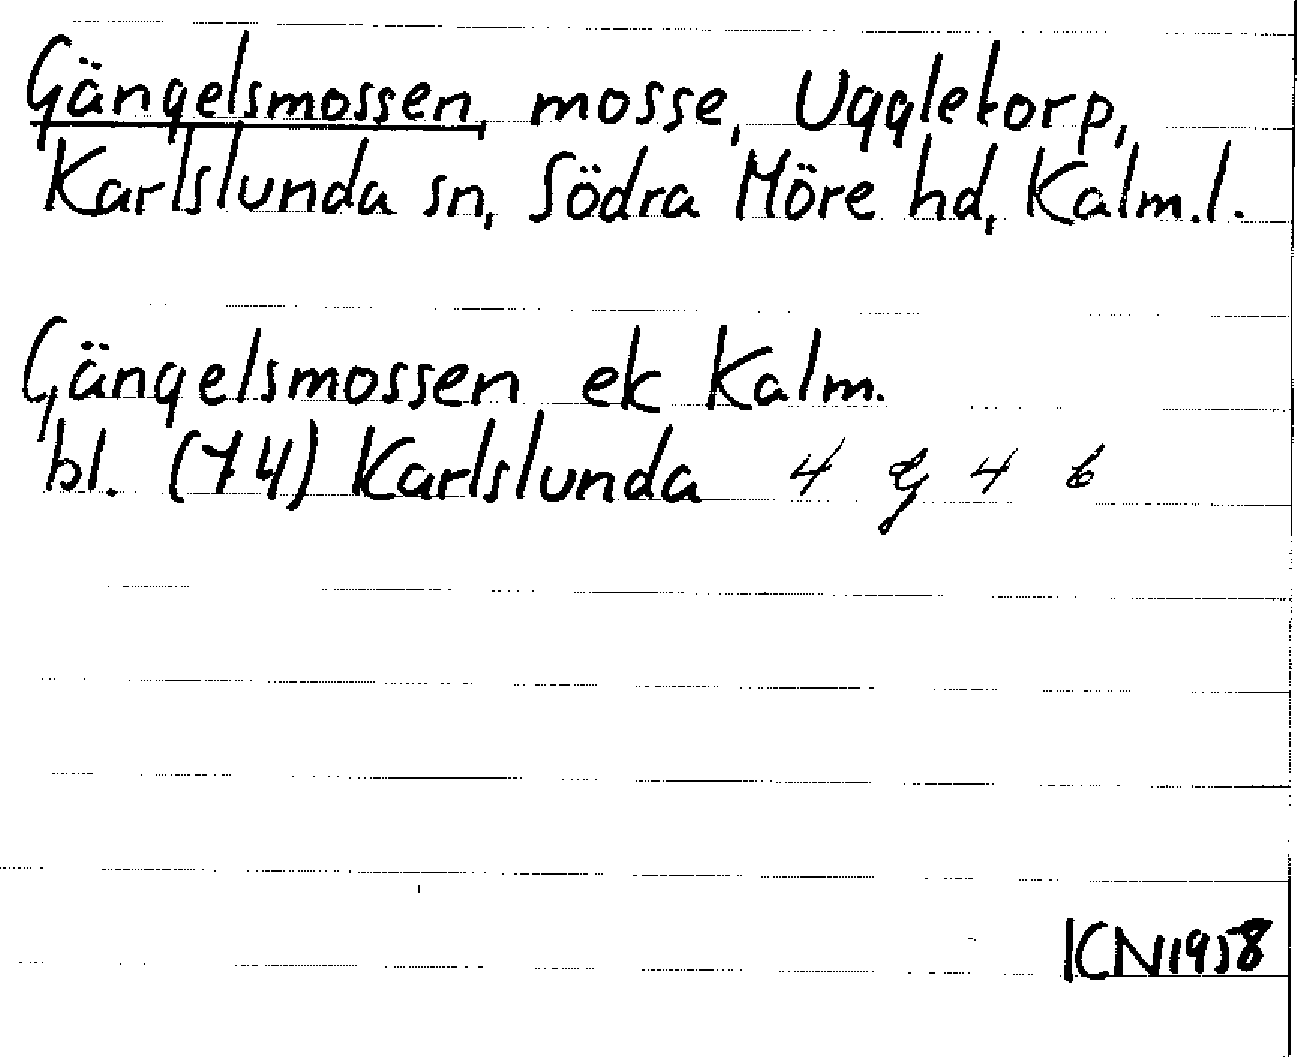 Gängelsmossen, mosse, Uggletorp,
Karlslunda sn, Södra Möre hd, Kalm.l.
Gängelsmossen ek Kalm.
bl. (74) Karlslunda 4 G 4 b
KN1958